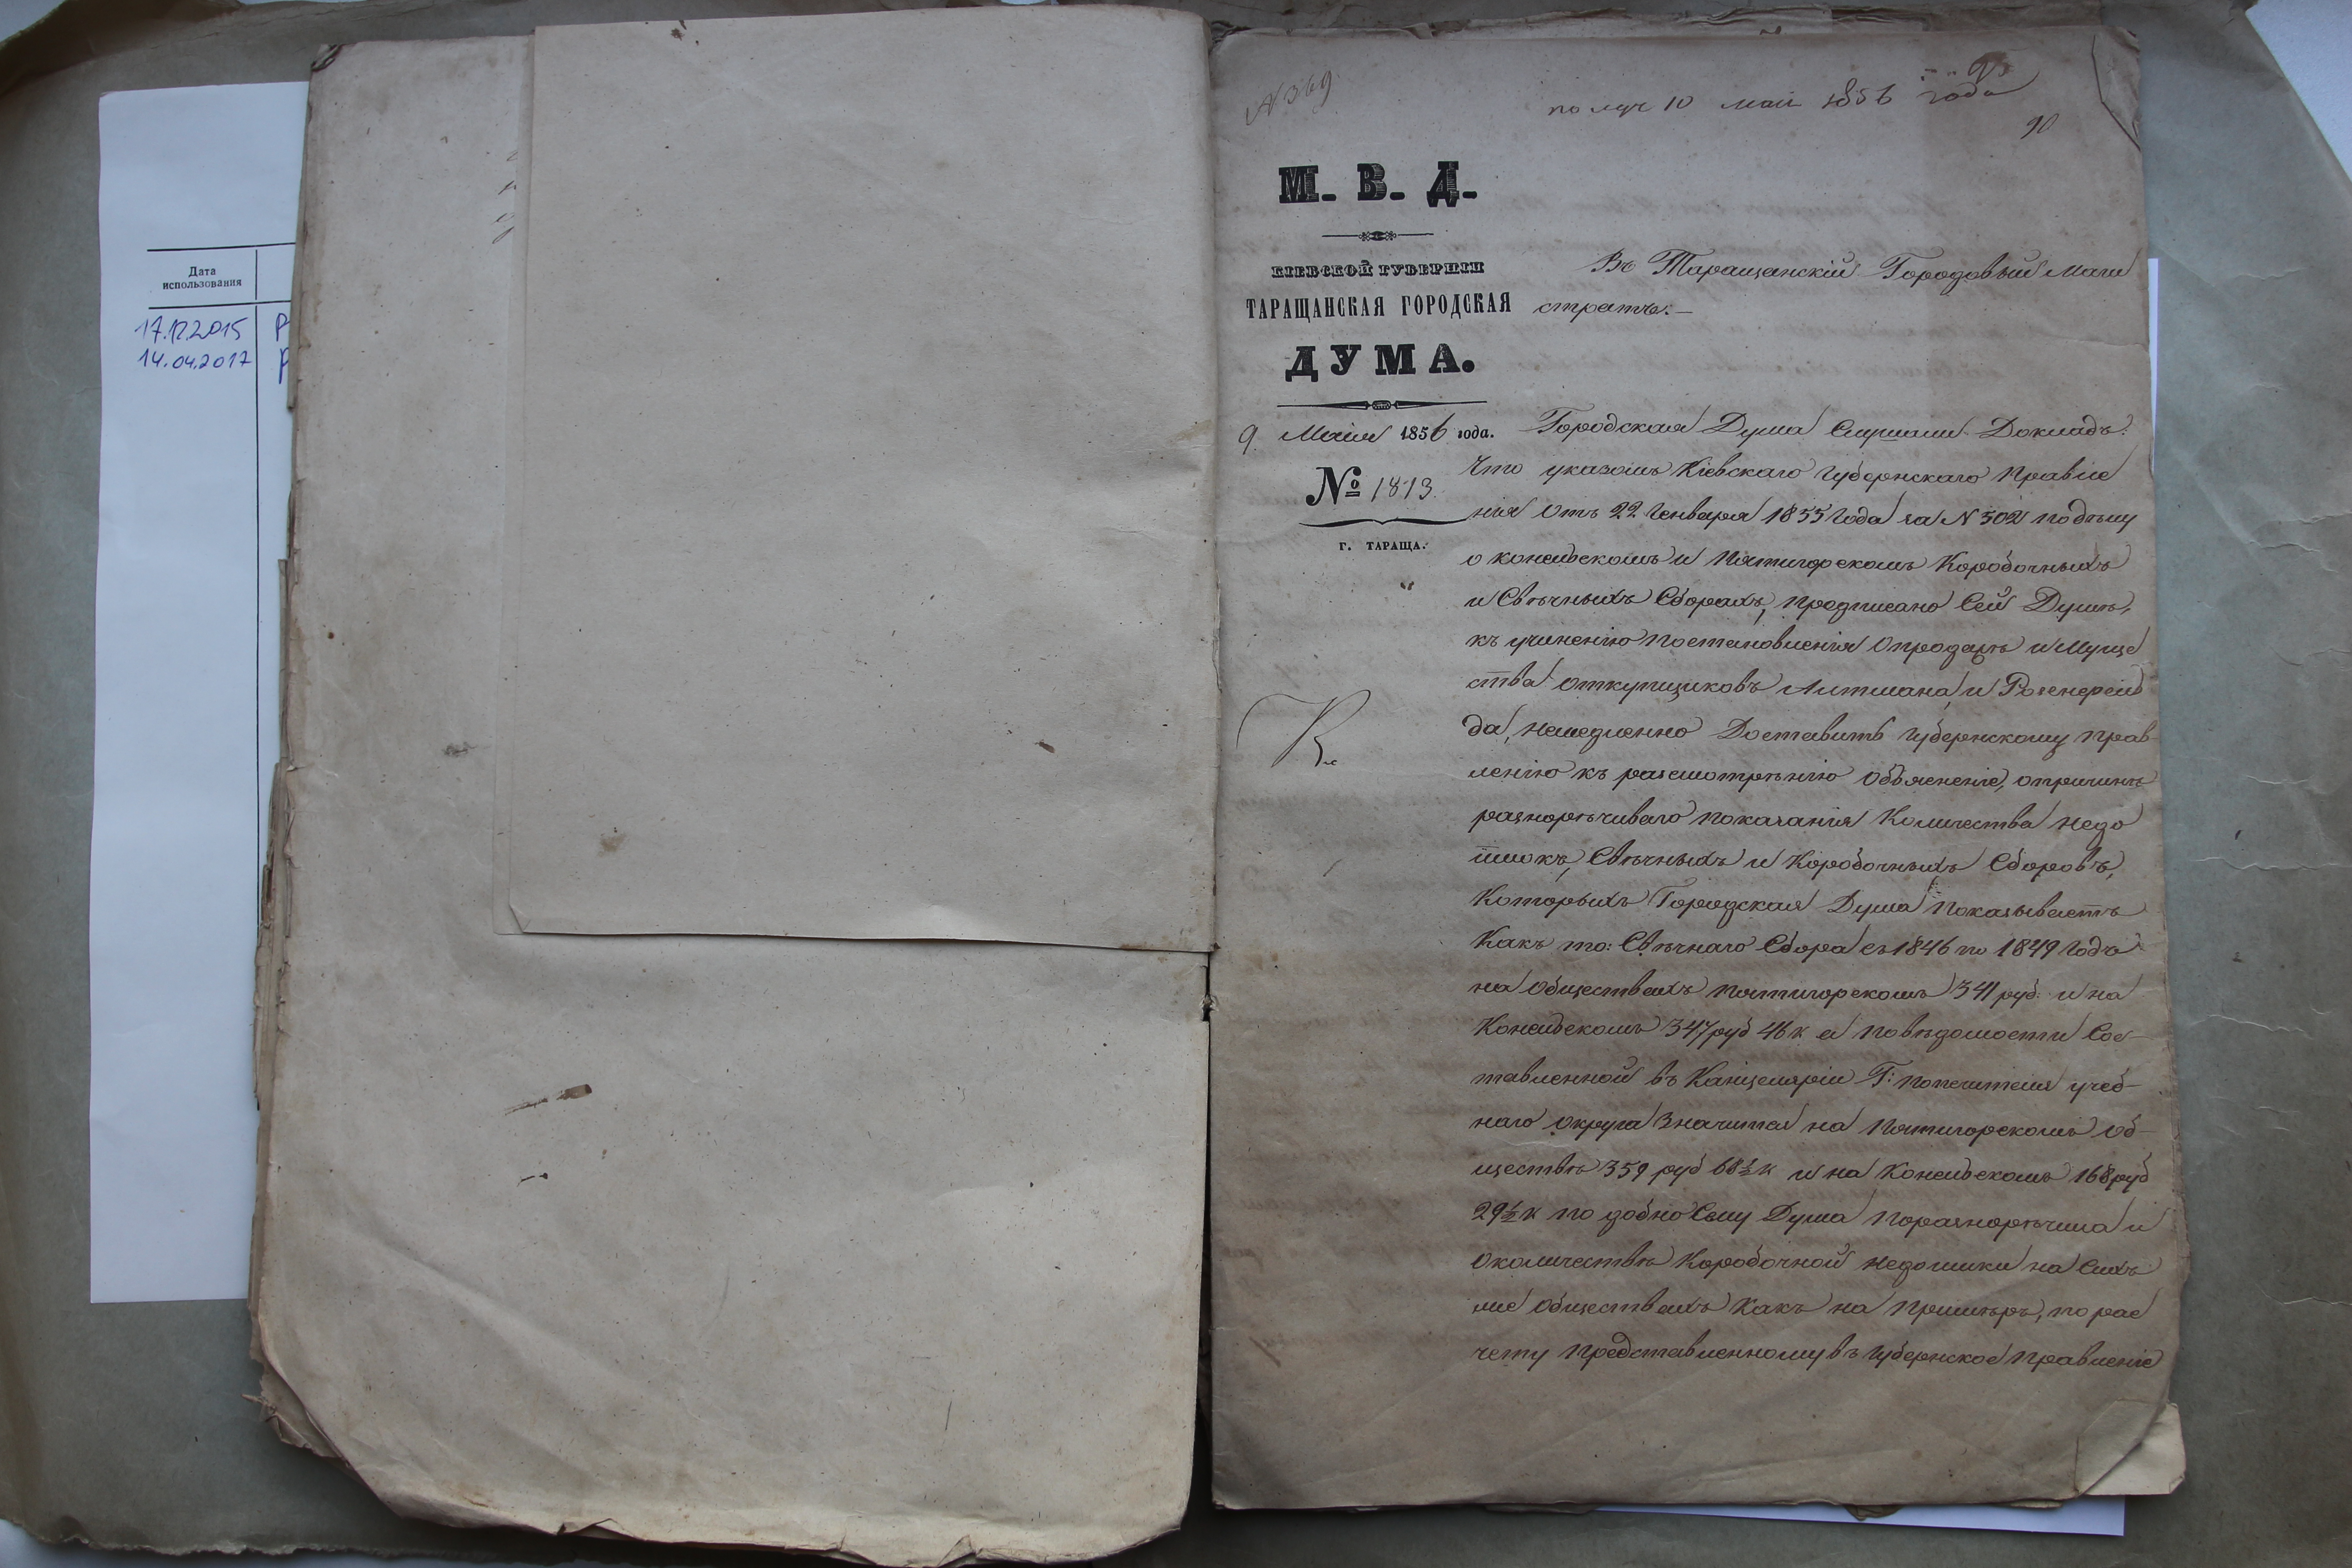 Дата
использования
17.12.2015
14.04.2017
№ 369
получ 10 мая 1856 года
95
90
М. В. Д.
КІЕВСКОЙ ГУБЕРНІИ
ТАРАЩАНСКАЯ ГОРОДСКАЯ
ДУМА.
9 Маія 1856 года.
№ 1813.
г. ТАРАЩА.
Въ Таращанскій Городовый Маги
стратъ.—
Городская Дума Слушали Докладъ:
Что указомъ Кіевскаго Губернскаго Правле
нія отъ 22 Генваря 1855 года за N 502 подѣлу
о конельскомъ и Пятигорскомъ Коробочныхъ
и Свѣчныхъ Сборахъ, предписано Сей Думѣ,
къ учиненію постановленія опродажѣ иМуще
ства откупщиковъ Литмана, и Розенфель
да, немедленно Доставить Губернскому Прав-
ленію къ разсмотрѣнію объясненіе, опричинѣ
разнорѣчиваго показанія Количества недо
имокъ, Свѣчныхъ и Коробочныхъ Сборовъ,
Которыхъ Городская Дума показываетъ
Какъ то: Свѣчнаго Сбора съ 1846 по 1849 Годъ
на обществахъ пятигорскомъ 341 руб: и на
Конельскомъ 347 руб 46 к а повѣдомости Сос-
тавленной въ Канцеляріи Г: попечителя учеб-
наго округа Значится на пятигорскомъ об-
ществѣ 359 руб 68½ к и на Конельскомъ 168 руб
29½ к по добно Сему Дума поразнорѣчила и
околичествѣ Коробочной недоимки на Сихъ
же обществахъ Какъ на примѣръ, по рас
чету представленному въ Губернское Правленіе